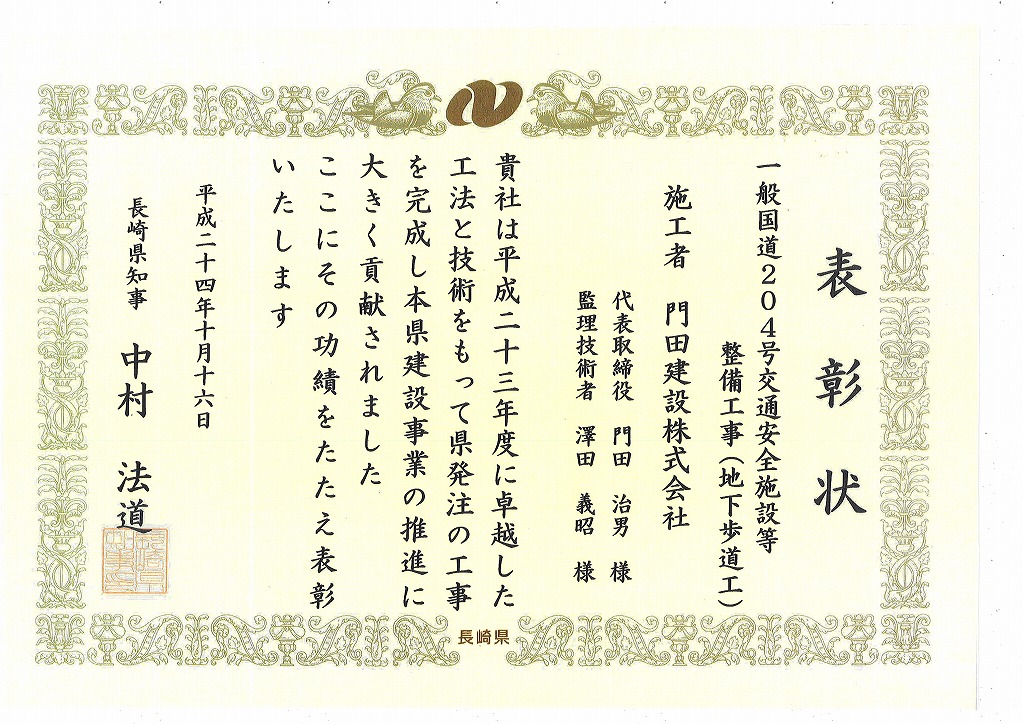 表彰状
一般国道204号交通安全施設等
整備工事(地下歩道工)
施工者 門田建設株式会社
代表取締役 門田 治男 様
監理技術者 澤田 義昭 様
貴社は平成二十三年度に卓越した
工法と技術をもって県発注の工事
を完成し本県建設事業の推進に
大きく貢献されました
ここにその功績をたたえ表彰
いたします
平成二十四年十月十六日
長崎県知事 中村 法道
長崎県